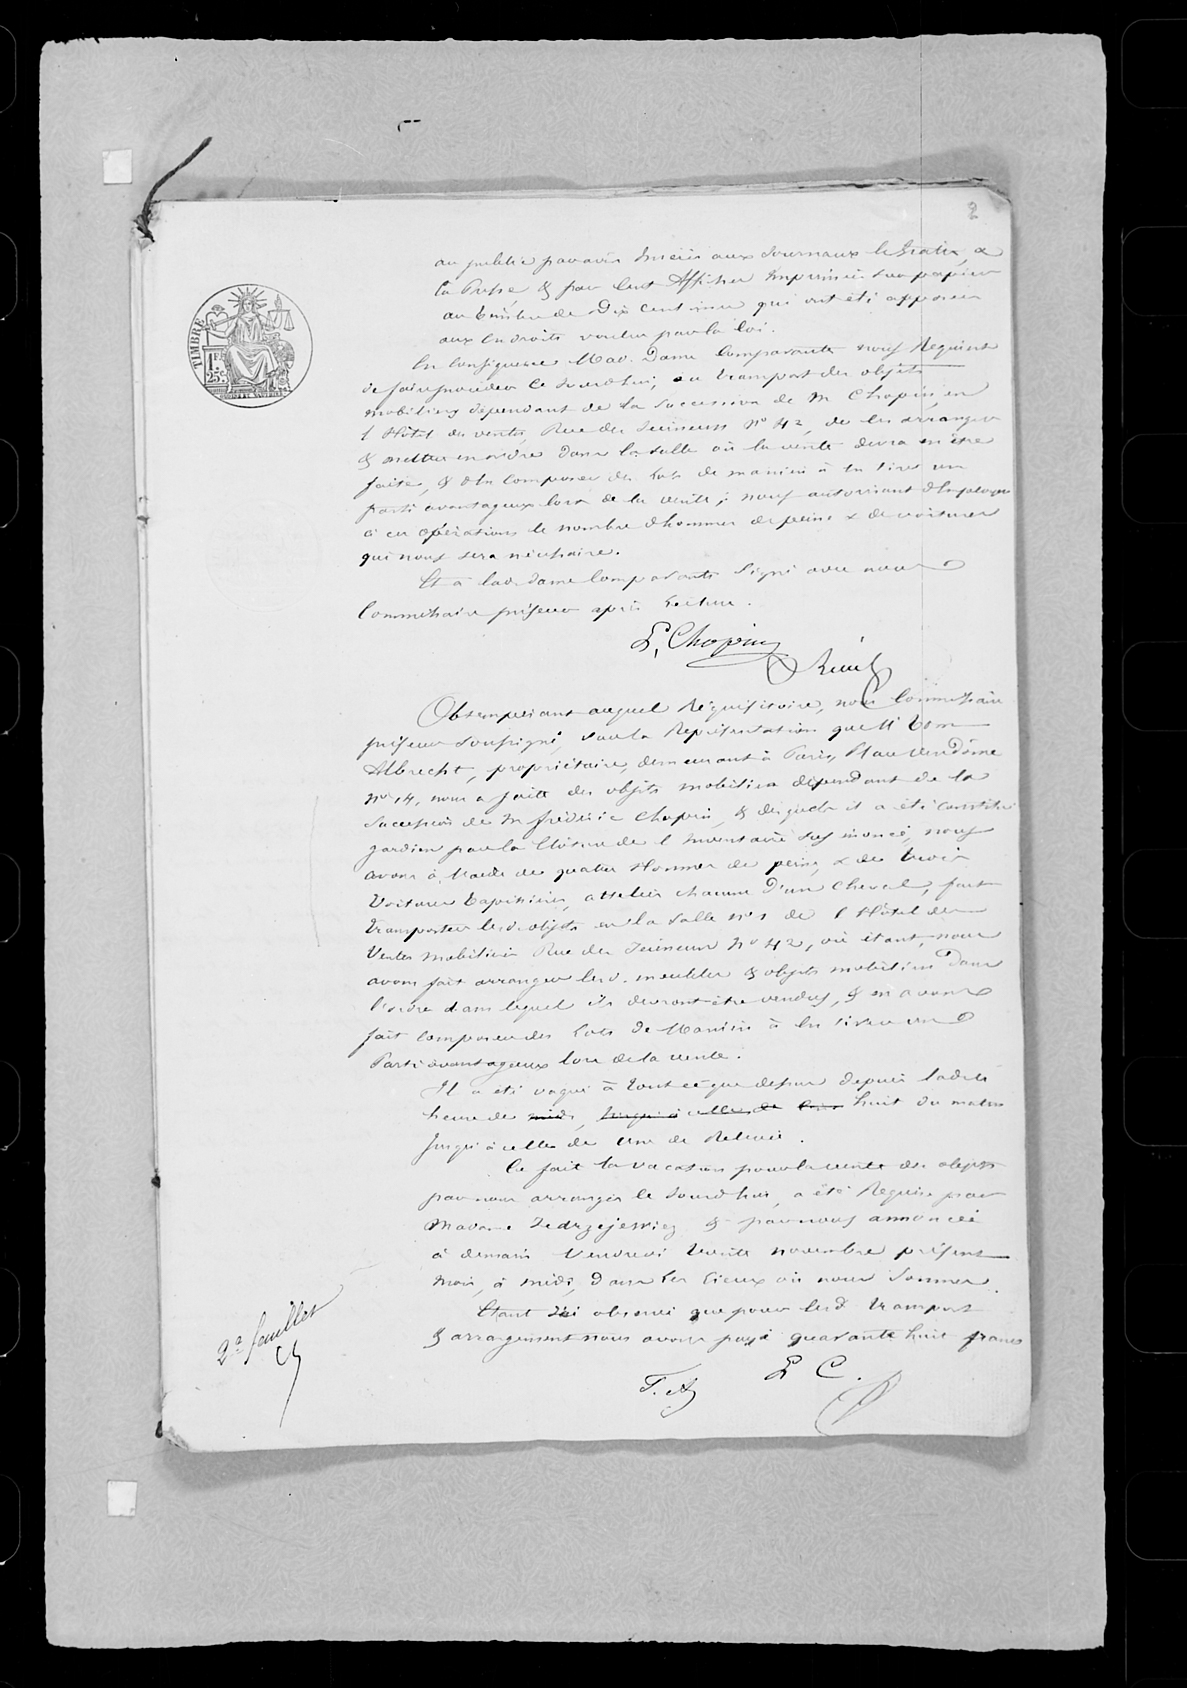 2
TIMBRE
1 FR
25 C
au public par avis insérés aux Journaux le Gratis, &
la Presse & par cent Affiches Imprimées sur papier
au timbre de Dix centimes qui ont été apposées
aux Endroits voulus par la loi.
En Conséquence Mad. Dame Comparante nous Requiert
de faire procéder Ce Jourd'hui, au transport des objets
mobiliers dépendant de la succession de M Chopin, en
l'Hôtel des ventes, Rue des Jeuneurs No 42, de les arranger
& mettre en ordre dans la salle où la vente devra en être
faite, & d'en Composer des Lots de manière à en tirer un
parti avantageux lors de la vente; nous autorisant d'employer
à ces opérations le nombre d'hommes de peine & de voitures
qui nous sera nécessaire.
Et a lad. dame Comparante Signé avec nous
Commissaire priseur après Lecture.
L, Chopin
Obtempérant auquel Réquisitoire, nous Commissaire
priseur Soussigné, sur la Représentation que Mr Tom
Albrecht, propriétaire, demeurant à Paris, Place Vendôme
No 14, nous a faite des objets mobiliers dépendant de la
Succession de M frédéric Chopin, & desquels il a été constitué
gardien par la Clôture de l'Inventaire sus énoncé, nous
avons à l'aide de quatre Hommes de peine, & de trois
Voitures tapissières, attelées chacune d'un Cheval, fait
transporter lesd. objets en la Salle No 1 de l'Hôtel des
Ventes Mobilières Rue des Jeuneurs No 42, où étant, nous
avons fait arranger lesd. meubles & objets mobiliers dans
l'ordre dans lequel ils devront être vendus, & en avons
fait composer des Lots de Manière à en tirer un
Parti avantageux lors de la vente.
Il a été vaqué à tout ce que dessus depuis ladite
heure de midi, jusqu'à celle de huit du matin
Jusqu'à celle de Une de Relevée.
Ce fait la vacation pour la vente des objets
par nous arrangés Ce Jourd'hui, a été Requise par
Madame Jedrzejewicz & par nous annoncée
à demain Vendredi trente novembre présent
Mois, à midi, dans les Lieux où nous Sommes.
Etant ici observé que pour lesd. transport
& arrangement nous avons payé quarante huit francs
2e feuillet
T. A
L C.